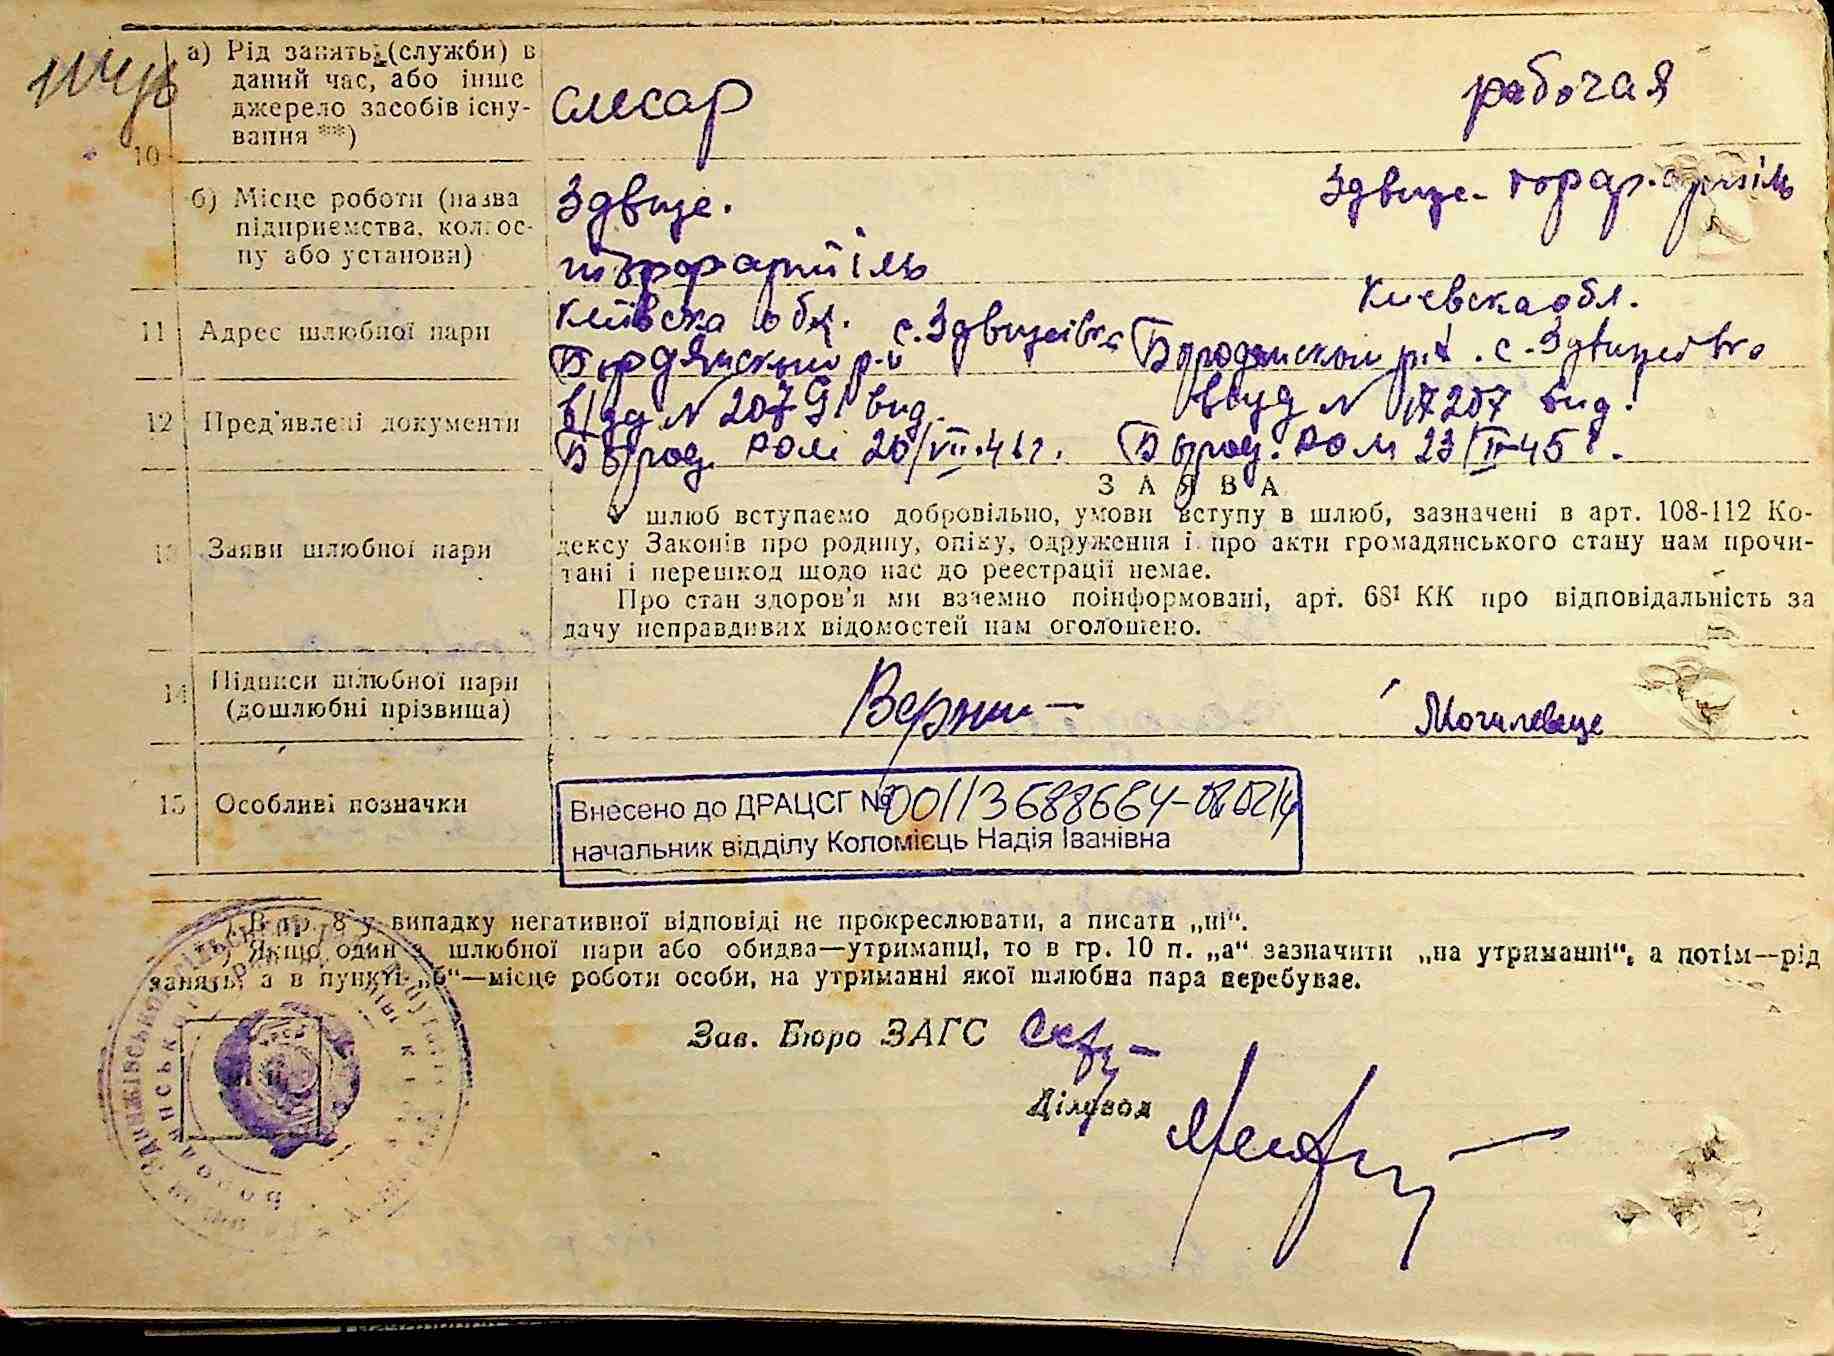 а) Рід занять (служби) в
даний час, або інше
джерело засобів існу-
вання **)
слесар
рабочая
10
б) Місце роботи (назва
підприємства, колгос-
пу або установи)
Здвиже.
торфартіль
Здвиже- торфартіль
11 Адрес шлюбної пари
Київска обл. с. Здвижівка
Бородянский р-н
Киевска обл.
Бородянской с. Здвижевка
12 Пред'явлені документи
N 20791 вид.
Бород. РОМ 20/VII-41г.
N 17207 вид.
Бород. РОМ 23/II-45г.
13 Заяви шлюбної пари
ЗАЯВА
У шлюб вступаємо добровільно, умови вступу в шлюб, зазначені в арт. 108-112 Ко-
дексу Законів про родину, опіку, одруження і про акти громадянського стану нам прочи-
тані і перешкод щодо нас до реєстрації немає.
Про стан здоров'я ми взаємно поінформовані, арт. 68¹ КК про відповідальність за
дачу неправдивих відомостей нам оголошено.
14 Підписи шлюбної пари
(дошлюбні прізвища)
Могилевец
15 Особливі позначки
Внесено до ДРАЦСГ № 00113688664
начальник відділу Коломієць Надія Іванівна
) В гр. 8 у випадку негативної відповіді не прокреслювати, а писати „ні“.
) Якщо один з шлюбної пари або обидва—утриманці, то в гр. 10 п. „а“ зазначити „на утриманні“, а потім—рід
занять, а в пункті „б“—місце роботи особи, на утриманні якої шлюбна пара перебуває.
Зав. Бюро ЗАГС
Діловод